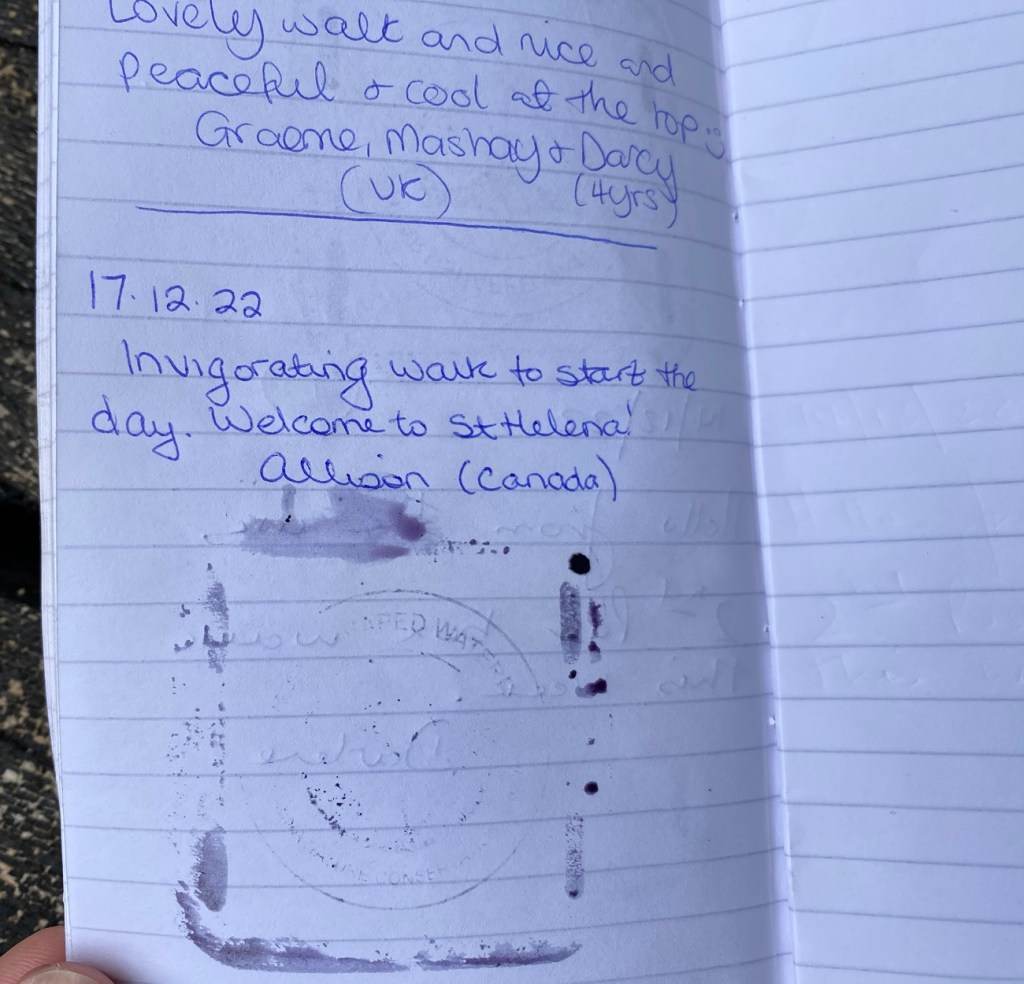 Lovely walk and nice and
peaceful & cool at the top :)
Graeme, Mashay & Darcy
(UK) (4yrs)
17.12.22
Invigorating walk to start the
day. Welcome to St Helena!
Allison (Canada)